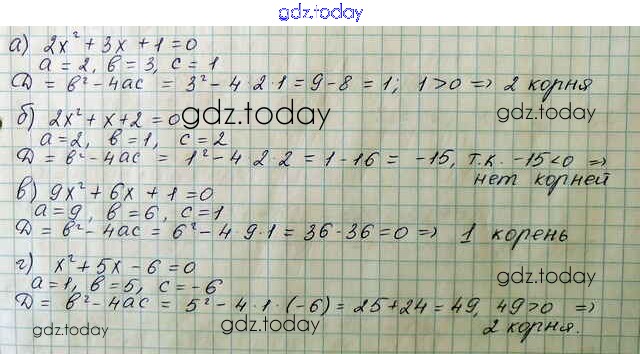 gdz.today
а) 2x² + 3x + 1 = 0
a = 2, b = 3, c = 1
D = b² - 4ac = 3² - 4·2·1 = 9 - 8 = 1; 1 > 0 => 2 корня
gdz.today
б) 2x² + x + 2 = 0
gdz.today
a = 2, b = 1, c = 2
D = b² - 4ac = 1² - 4 2·2 = 1 - 16 = -15, т.к. -15 < 0 =>
нет корней
в) 9x² + 6x + 1 = 0
a = 9, b = 6, c = 1
D = b² - 4ac = 6² - 4 9·1 = 36 - 36 = 0 => 1 корень
г) x² + 5x - 6 = 0
gdz.today
a = 1, b = 5, c = -6
D = b² - 4ac = 5² - 4·1·(-6) = 25 + 24 = 49, 49 > 0 =>
2 корня.
gdz.today
gdz.today